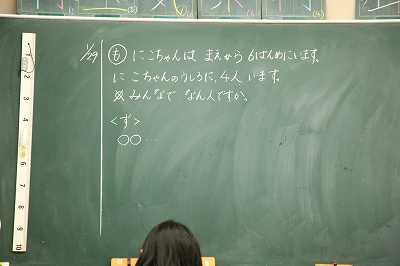 1/29
も にこちゃんは、まえから 6ばんめにいます。
にこちゃんのうしろに、4人 います。
※みんなで なん人ですか。
<ず>
○○…
1
2
3
4
5
6
7
8
9
10